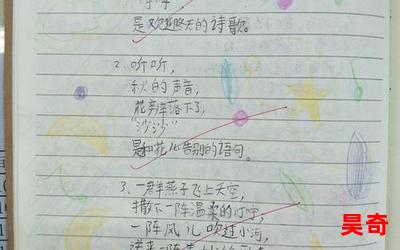 是欢迎秋天的诗歌。
2、听听,
秋的声音,
花瓣落下了,
“沙沙”
是和花儿告别的语句。
3、一群燕子飞上天空,
撒下一阵温柔的叮咛,
一阵风儿吹过小河,
昊奇